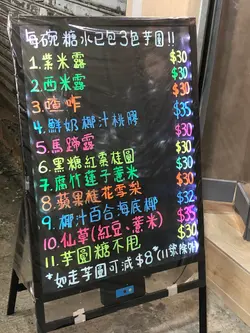 每碗糖水已包3包芋圓!!
1.紫米露 $30
2.西米露 $30
3.喳咋 $30
4.鮮奶椰汁桃膠 $35
5.馬蹄露 $30
6.黑糖紅棗桂圓 $30
7.腐竹蓮子薏米 $30
8.蘋果桂花雪梨 $30
9.椰汁百合海底椰 $32
10.仙草(紅豆、薏米) $35
11.芋圓糖不甩 $30
*如走芋圓可減$8*(11號除外)